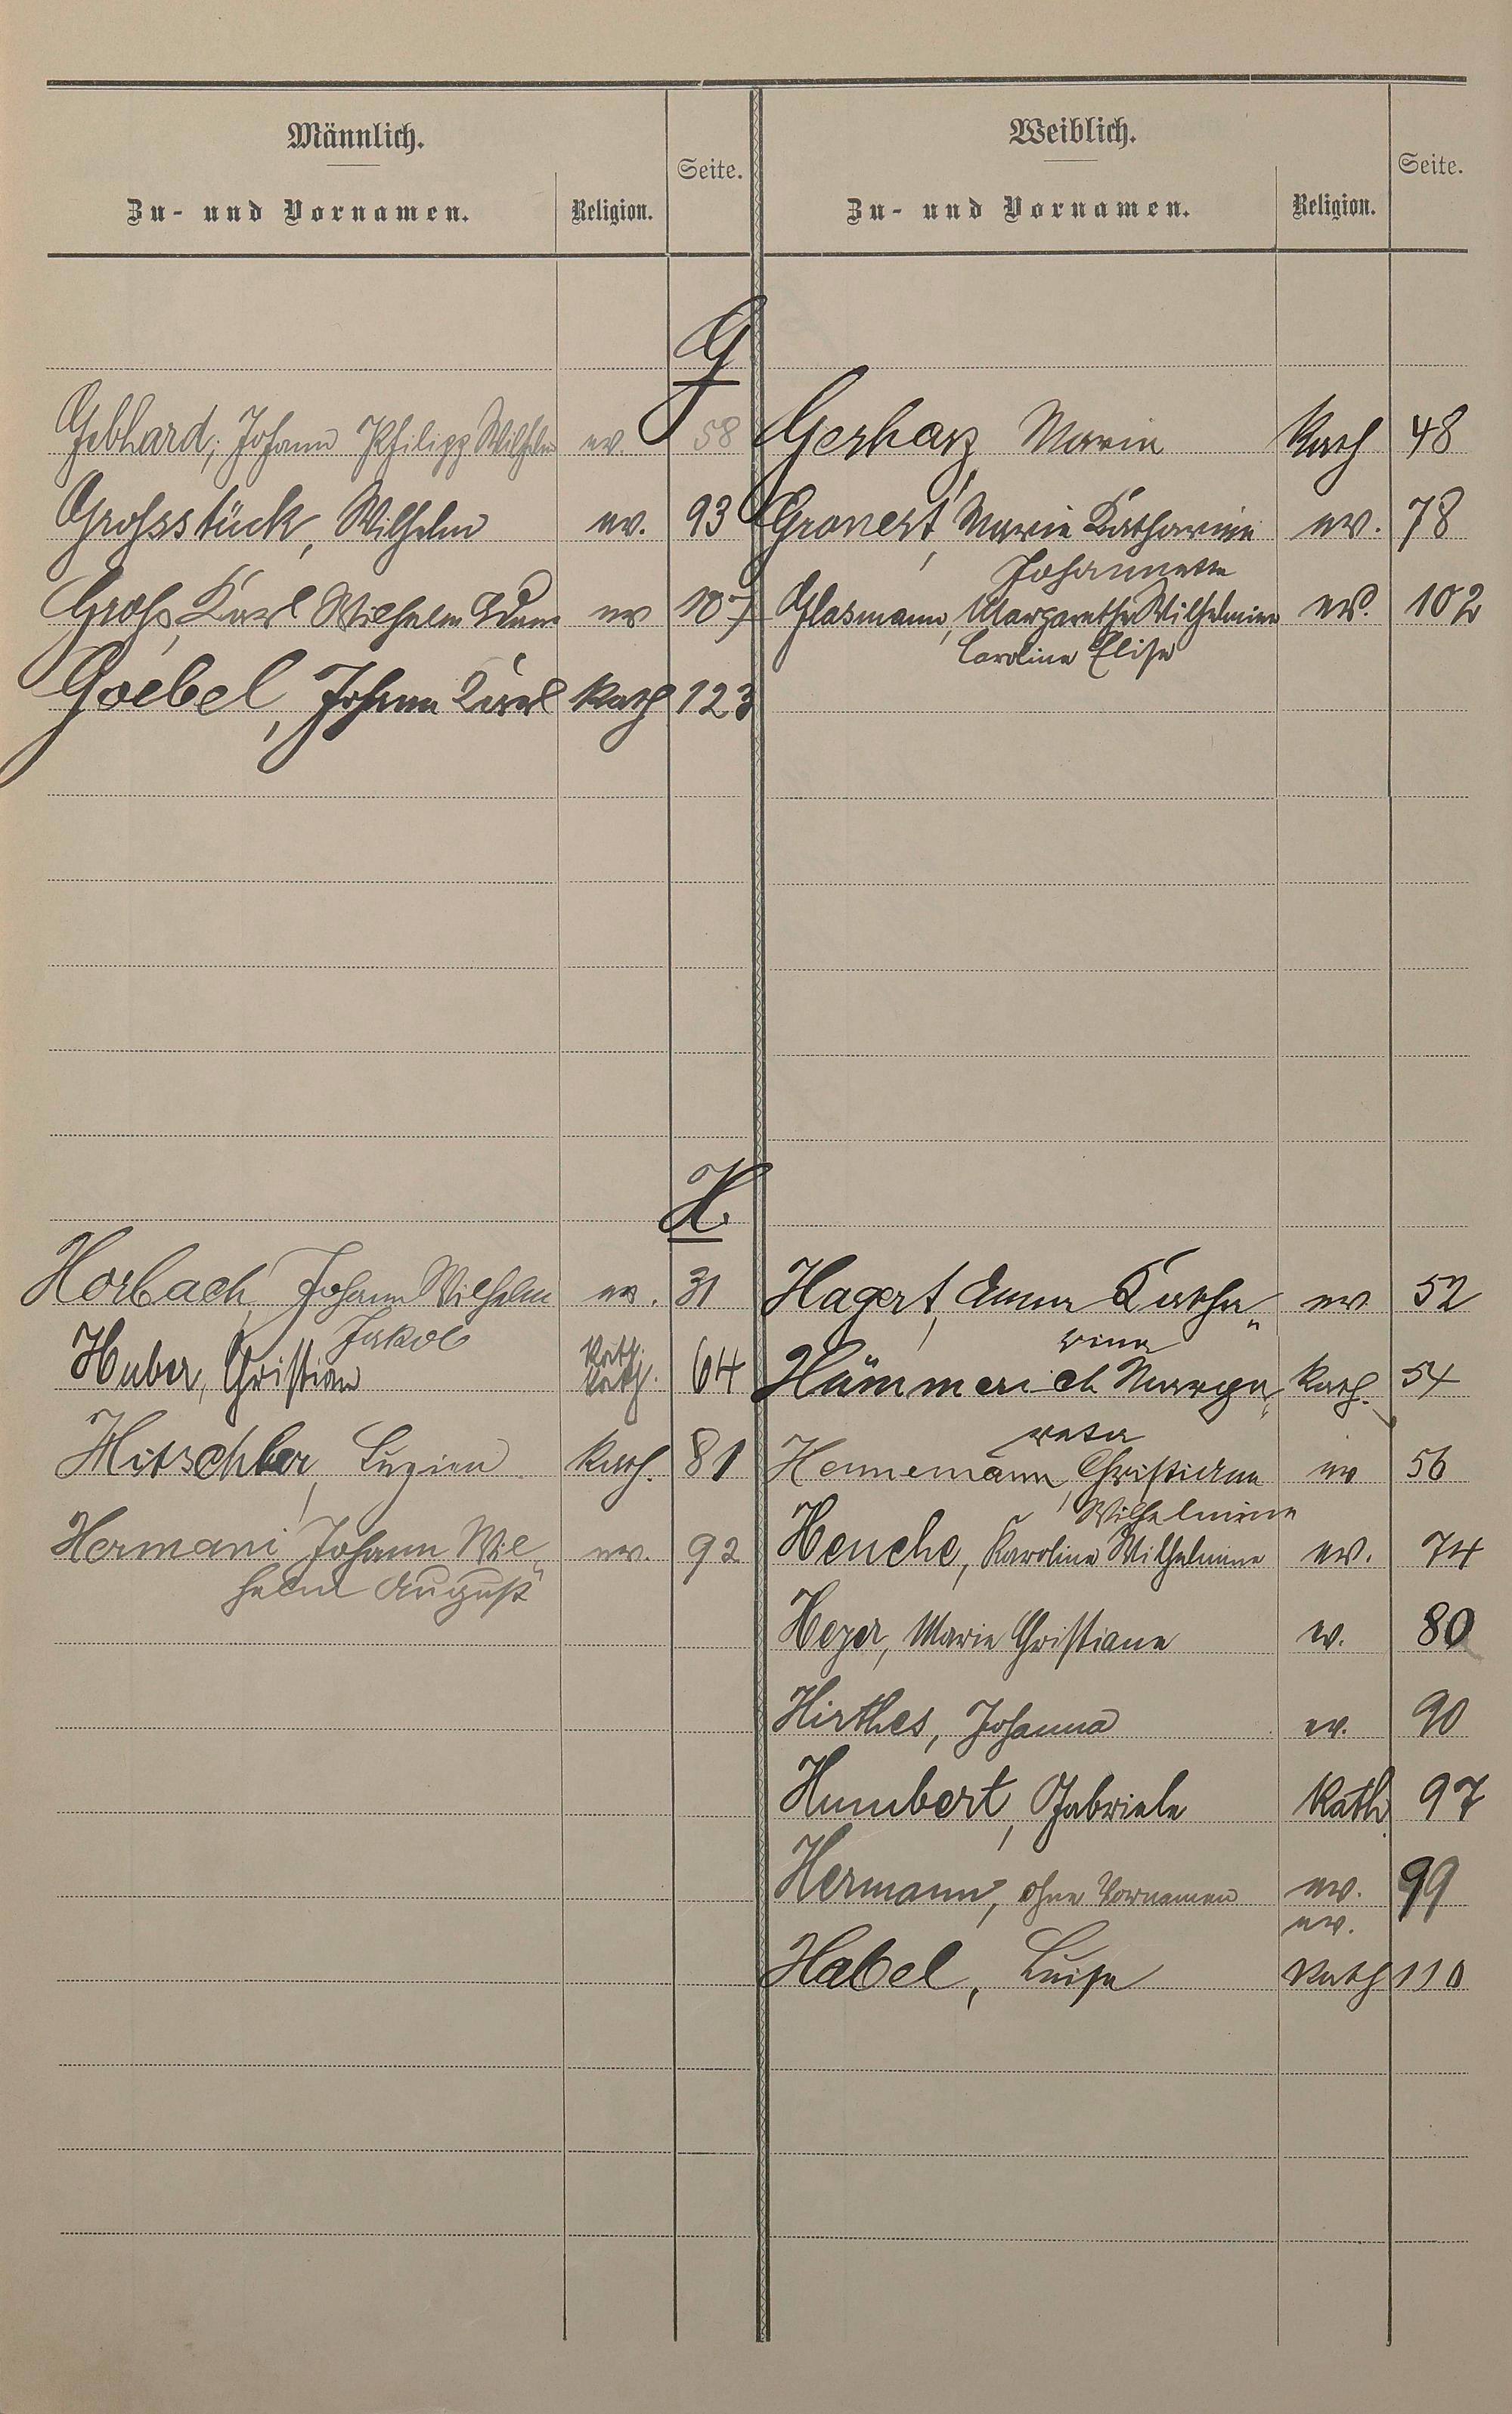 Männlich.
Zu- und Vornamen.
Religion.
Seite.
Weiblich.
Zu- und Vornamen.
Religion.
Seite.
G
Gebhard, Johann Philipp Wilhelm ev. 58
Grossstück, Wilhelm ev. 93
Groß, Karl Wilhelm Adam ev 107
Goebel, Johann Karl Kath 123
Gerharz Maria Kath 48
Gronert, Marie Katharine ev. 78
Johannette
Glasmann, Margarethe Wilhelmine ev. 102
Caroline Elise
H.
Horbach, Johann Wilhelm ev. 31
Jakob
Kath.
Huber, Christian kath. 64
Hitschler, Luzian Kath. 81
Hermani Johann Wil„ ev. 92
helm August
Hagert, Anna Katha„ ev 52
rina
Hümmerich Marga„ Kath. 54
reta
Hennemann, Christiane ev 56
Wilhelmine
Henche, Karoline Wilhelmine ev. 74
Heyer, Marie Christiane ev. 80
Hirthes, Johanna ev. 90
Humbert, Gabriele Kath. 97
Hermann, ohne Vornamen ev. 99
ev.
Habel, Luise Kath 110